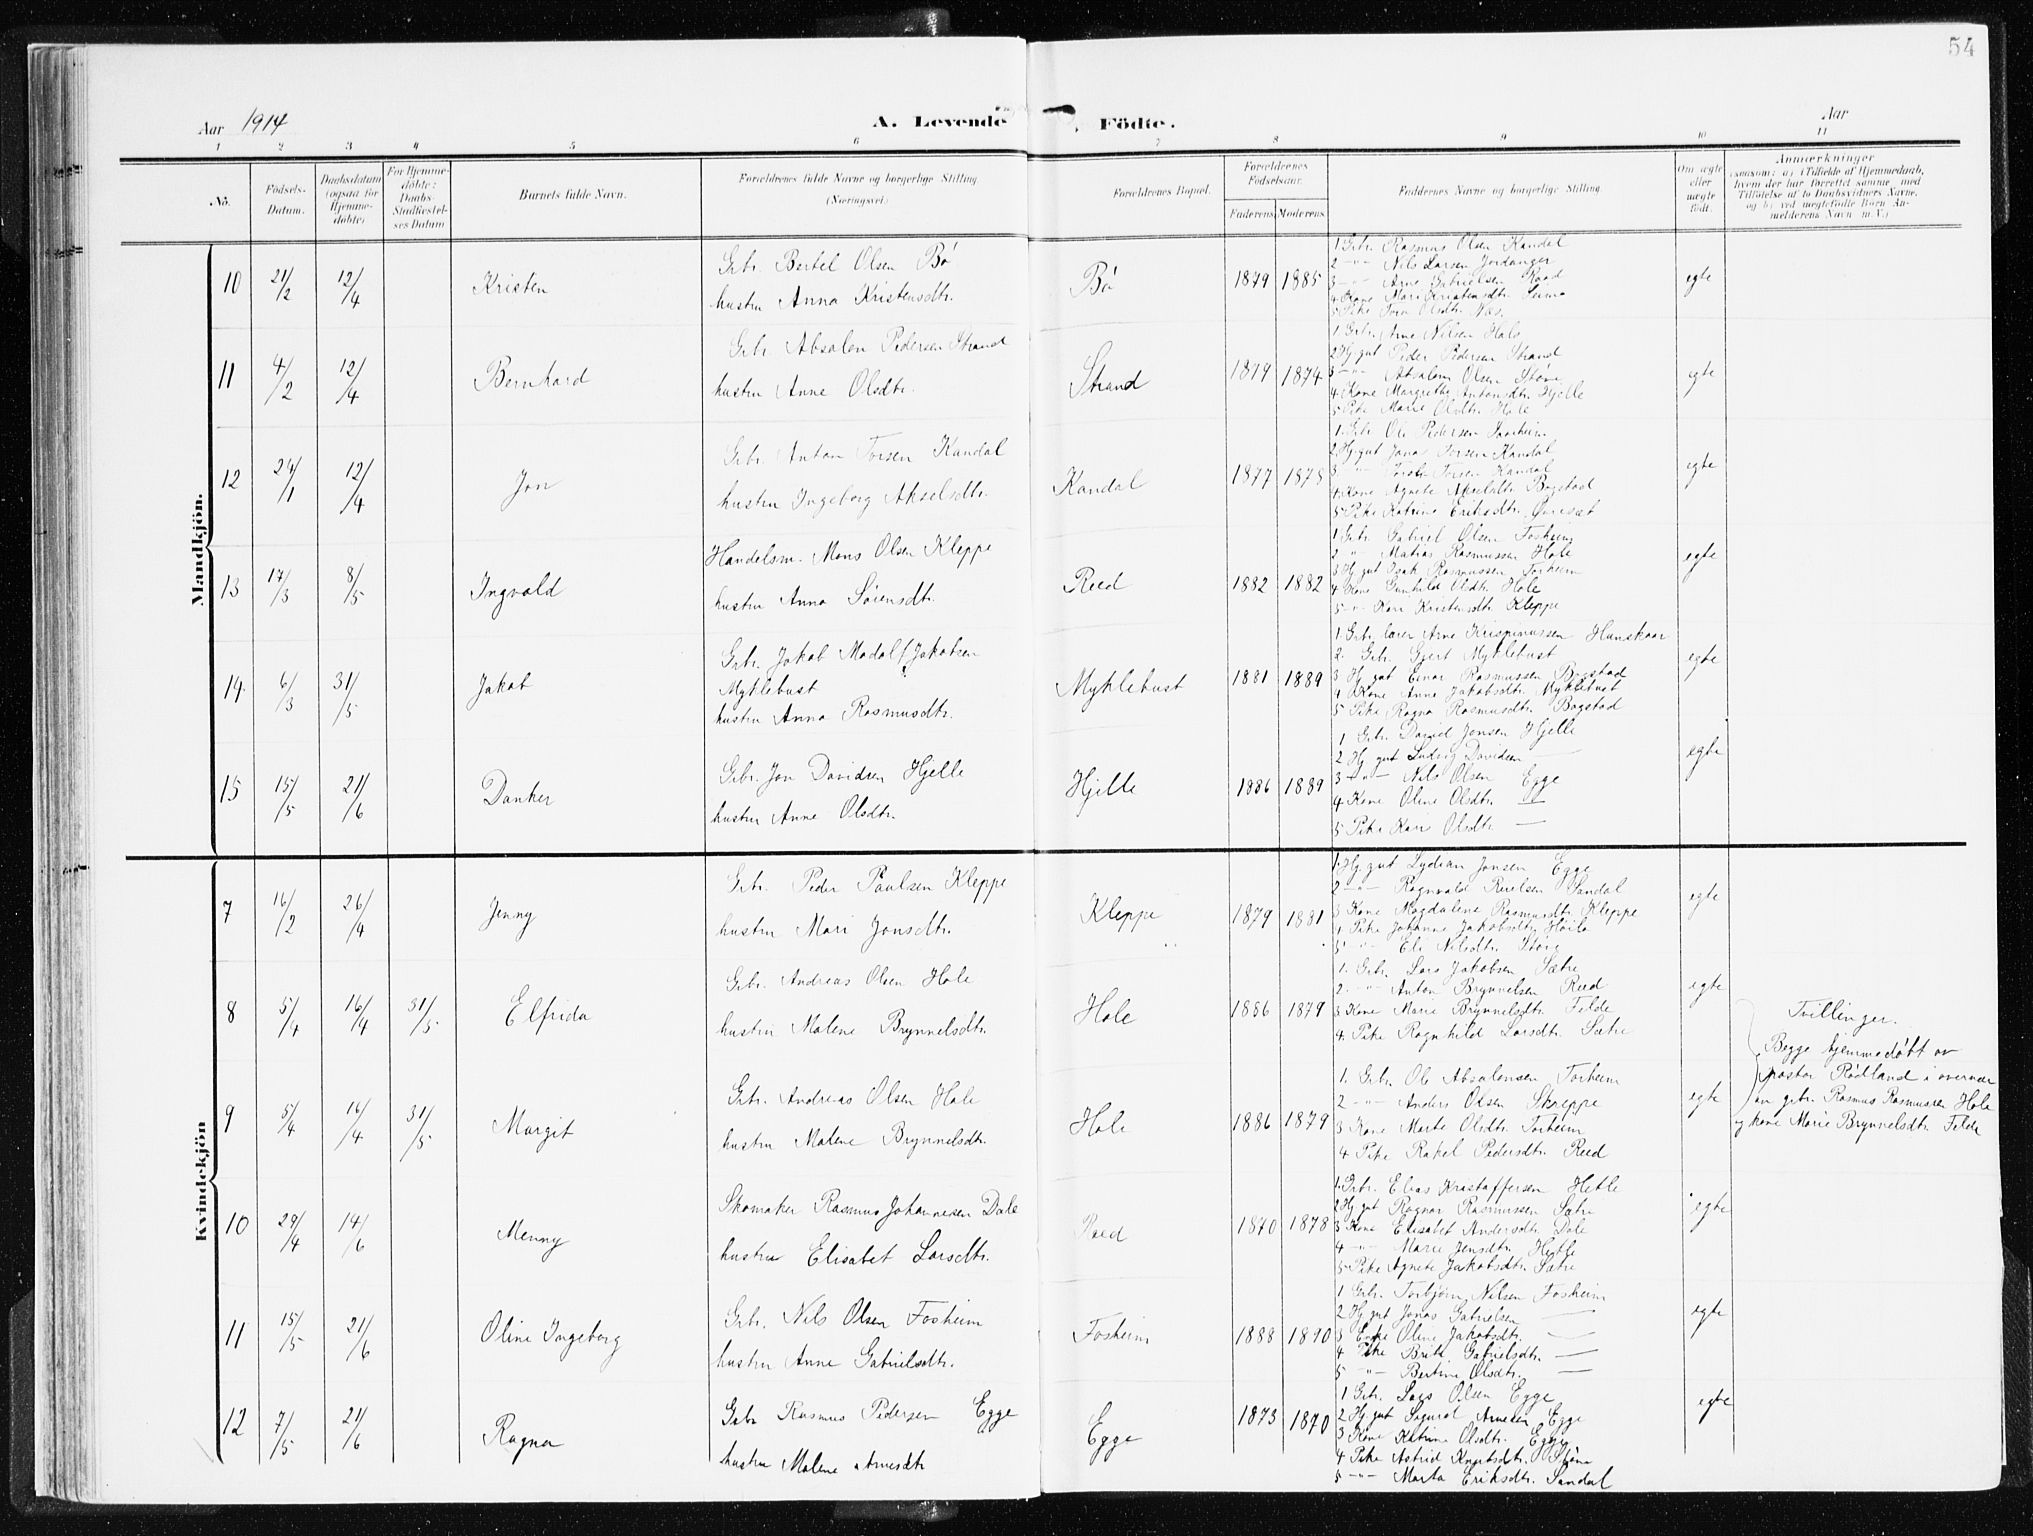 54
Aar 1914
A. Levende Födte.
Aar
1 2 3 4 5 6 7 8 9 10 11
No.
Födsels-Datum.
Daabsdatum (ogsaa for Hjemmedöbte)
For Hjemmedöbte: Daabs-Stadfæstelses Datum
Barnets fulde Navn.
Forældrenes fulde Navne og borgerlige Stilling (Næringsvei.)
Forældrenes Bopæl.
Forældrenes Födselsaar.
Faderens Moderens
Faddernes Navne og borgerlige Stilling.
Om ægte eller uægte födt.
Anmærkninger
(saasom: a) i Tilfælde af Hjemmedaab,
hvem der har forrettet samme med
Tilföielse af to Daabsvidners Navne,
og b) ved uægtefödte Börn An-
melderens Navn m.V.)
Mandkjön.
10 21/2 12/4 Kristen
Gbr. Bertel Olsen Bö
hustru Anna Kristensdtr.
Bö 1879 1885
1. Gbr. Rasmus Olsen Kandal
2 -"- Nils Larsen Jordanger
3 -"- Arne Gabrielsen Raad
4 Kone Mari Kristensdtr.
5 Pike Olsdtr. Næs.
egte
11 4/2 12/4 Bernhard
Gbr. Absalon Pedersen Strand
hustru Anne Olsdtr.
Strand 1879 1874
1. Gbr. Arne Nilsen Hole
2 Hj. gut Peder Pedersen Strand
3 -"- Absalom Olsen Støve
4 Kone Margrethe Antonsdtr Hjelle
5 Pike Marie Olsdtr. Hole
egte
12 29/1 12/4 Jon
Gbr. Anton Torsen Kandal
hustru Ingeborg Akselsdtr.
Kandal 1877 1878
1. Gbr Ole Pedersen
2 Hj. gut Jona Torsen Kandal
3 " Torsten Torsen Kandal
4 Kone Agnete Akselsdtr. Bogstad
5 Pike Katrine Eriksdtr.
egte
13 17/3 8/5 Ingvald
Handelsm. Mons Olsen Kleppe
hustru Anna Sörensdtr.
Reed 1882 1882
1 Gbr. Gabriel Olsen Fosheim
2 " Matias Rasmussen Hole
3 Hj gut Isak Rasmussen Forheim
4 Kone Gunhild Olsdtr. Hole
5 -"- Kari Kristensdtr Kleppe
egte
14 6/3 31/5 Jakob
Gbr. Jakob Madolf Jakobsen
Myklebust
hustru Anna Rasmusdtr.
Myklebust 1881 1889
1. Gbr. lærer Arne Krispinussen Hunskaar
2. Gbr. Gjert Myklebust
3 Hj gut Einar Rasmussen Bogstad
4 Kone Anne Jakobsdtr. Myklebust
5 Pike Ragna Rasmusdtr. Bogstad
egte
15 15/5 21/6 Danker
Gbr. Jon Davidsen Hjelle
hustru Anne Olsdtr.
Hjelle 1886 1889
1 Gbr. David Jonsen Hjelle
2 Hj gut Ludvig Davidsen —
3 -"- Nils Olsen Egge
4 Kone Oline Olsdtr. —
5 Pike Kari Olsdtr —
egte
Kvindekjön
7 16/2 26/4 Jenny
Gbr. Peder Paulsen Kleppe
hustru Mari Jonsdtr.
Kleppe 1879 1881
1. Hj. gut Lydian Jonsen Egge
2 -"- Ragnvald Reielsen Sandal
3 Kone Magdalene Rasmusdtr. Kleppe
4 Pike Johanne Jakobsdtr.
5 -"- Eli Nilsdtr.
egte
8 5/4 16/4 31/5 Elfrida
Gbr. Andreas Olsen Hole
hustru Malene Brynnelsdtr.
Hole 1886 1879
1. Gbr. Lars Jakobsen Sætre
2. -"- Anton Brynnelsen Reed
3 Kone Marie Brynnelsdtr. Felde
4. Pike Ragnhild Larsdtr. Sætre
egte
Tvillinger.
Begge hjemmedöbt av
pastor Rödland i overvær
av gbr. Rasmus Rasmussen Hole
og kone Marie Brynnelsdtr. Felde
9 5/4 16/4 31/5 Margit
Gbr. Andreas Olsen Hole
hustru Malene Brynnelsdtr.
Hole 1886 1879
1. Gbr. Ole Absalonsen Forheim
2 -"- Anders Olsen Skreppe
3 Kone Marte Olsdtr. Forheim
4 Pike Rakel Pedersdtr. Reed
egte
10 29/4 14/6 Menny
Skomaker Rasmus Johannesen Dale
hustru Elisabet Larsdtr.
Reed 1870 1878
1. Gbr. Elias Kristaffersen Hetle
2 Hj gut Ragnar Rasmussen Sætre
3 Kone Elisabet Andersdtr Dale
4 -"- Marie Jensdtr. Hetle
5 Pike Agnete Jakobsdtr. Sætre
egte
11 15/5 21/6 Oline Ingeborg
Gbr. Nils Olsen Fosheim
hustru Anne Gabrielsdtr.
Fosheim 1888 1890
1 Gbr. Torbjörn Nilsen Fosheim
2 Hj gut Jonas Gabrielsen —
3 Enke Oline Jakobsdtr. —
4 Pike Brite Gabrielsdtr. —
5 -"- Bertine Olsdtr. —
egte
12 7/5 21/6 Ragna
Gbr Rasmus Pedersen Egge
hustru Malene Arnesdtr
Egge 1873 1870
1 Gbr. Lars Olsen Egge
2 Hj gut Sigurd Arnesen Egge
3 Kone Katrine Olsdtr. Egge
4 Pike Astrid Knutsdtr.
5 -"- Marta Eriksdtr. Sandal
egte